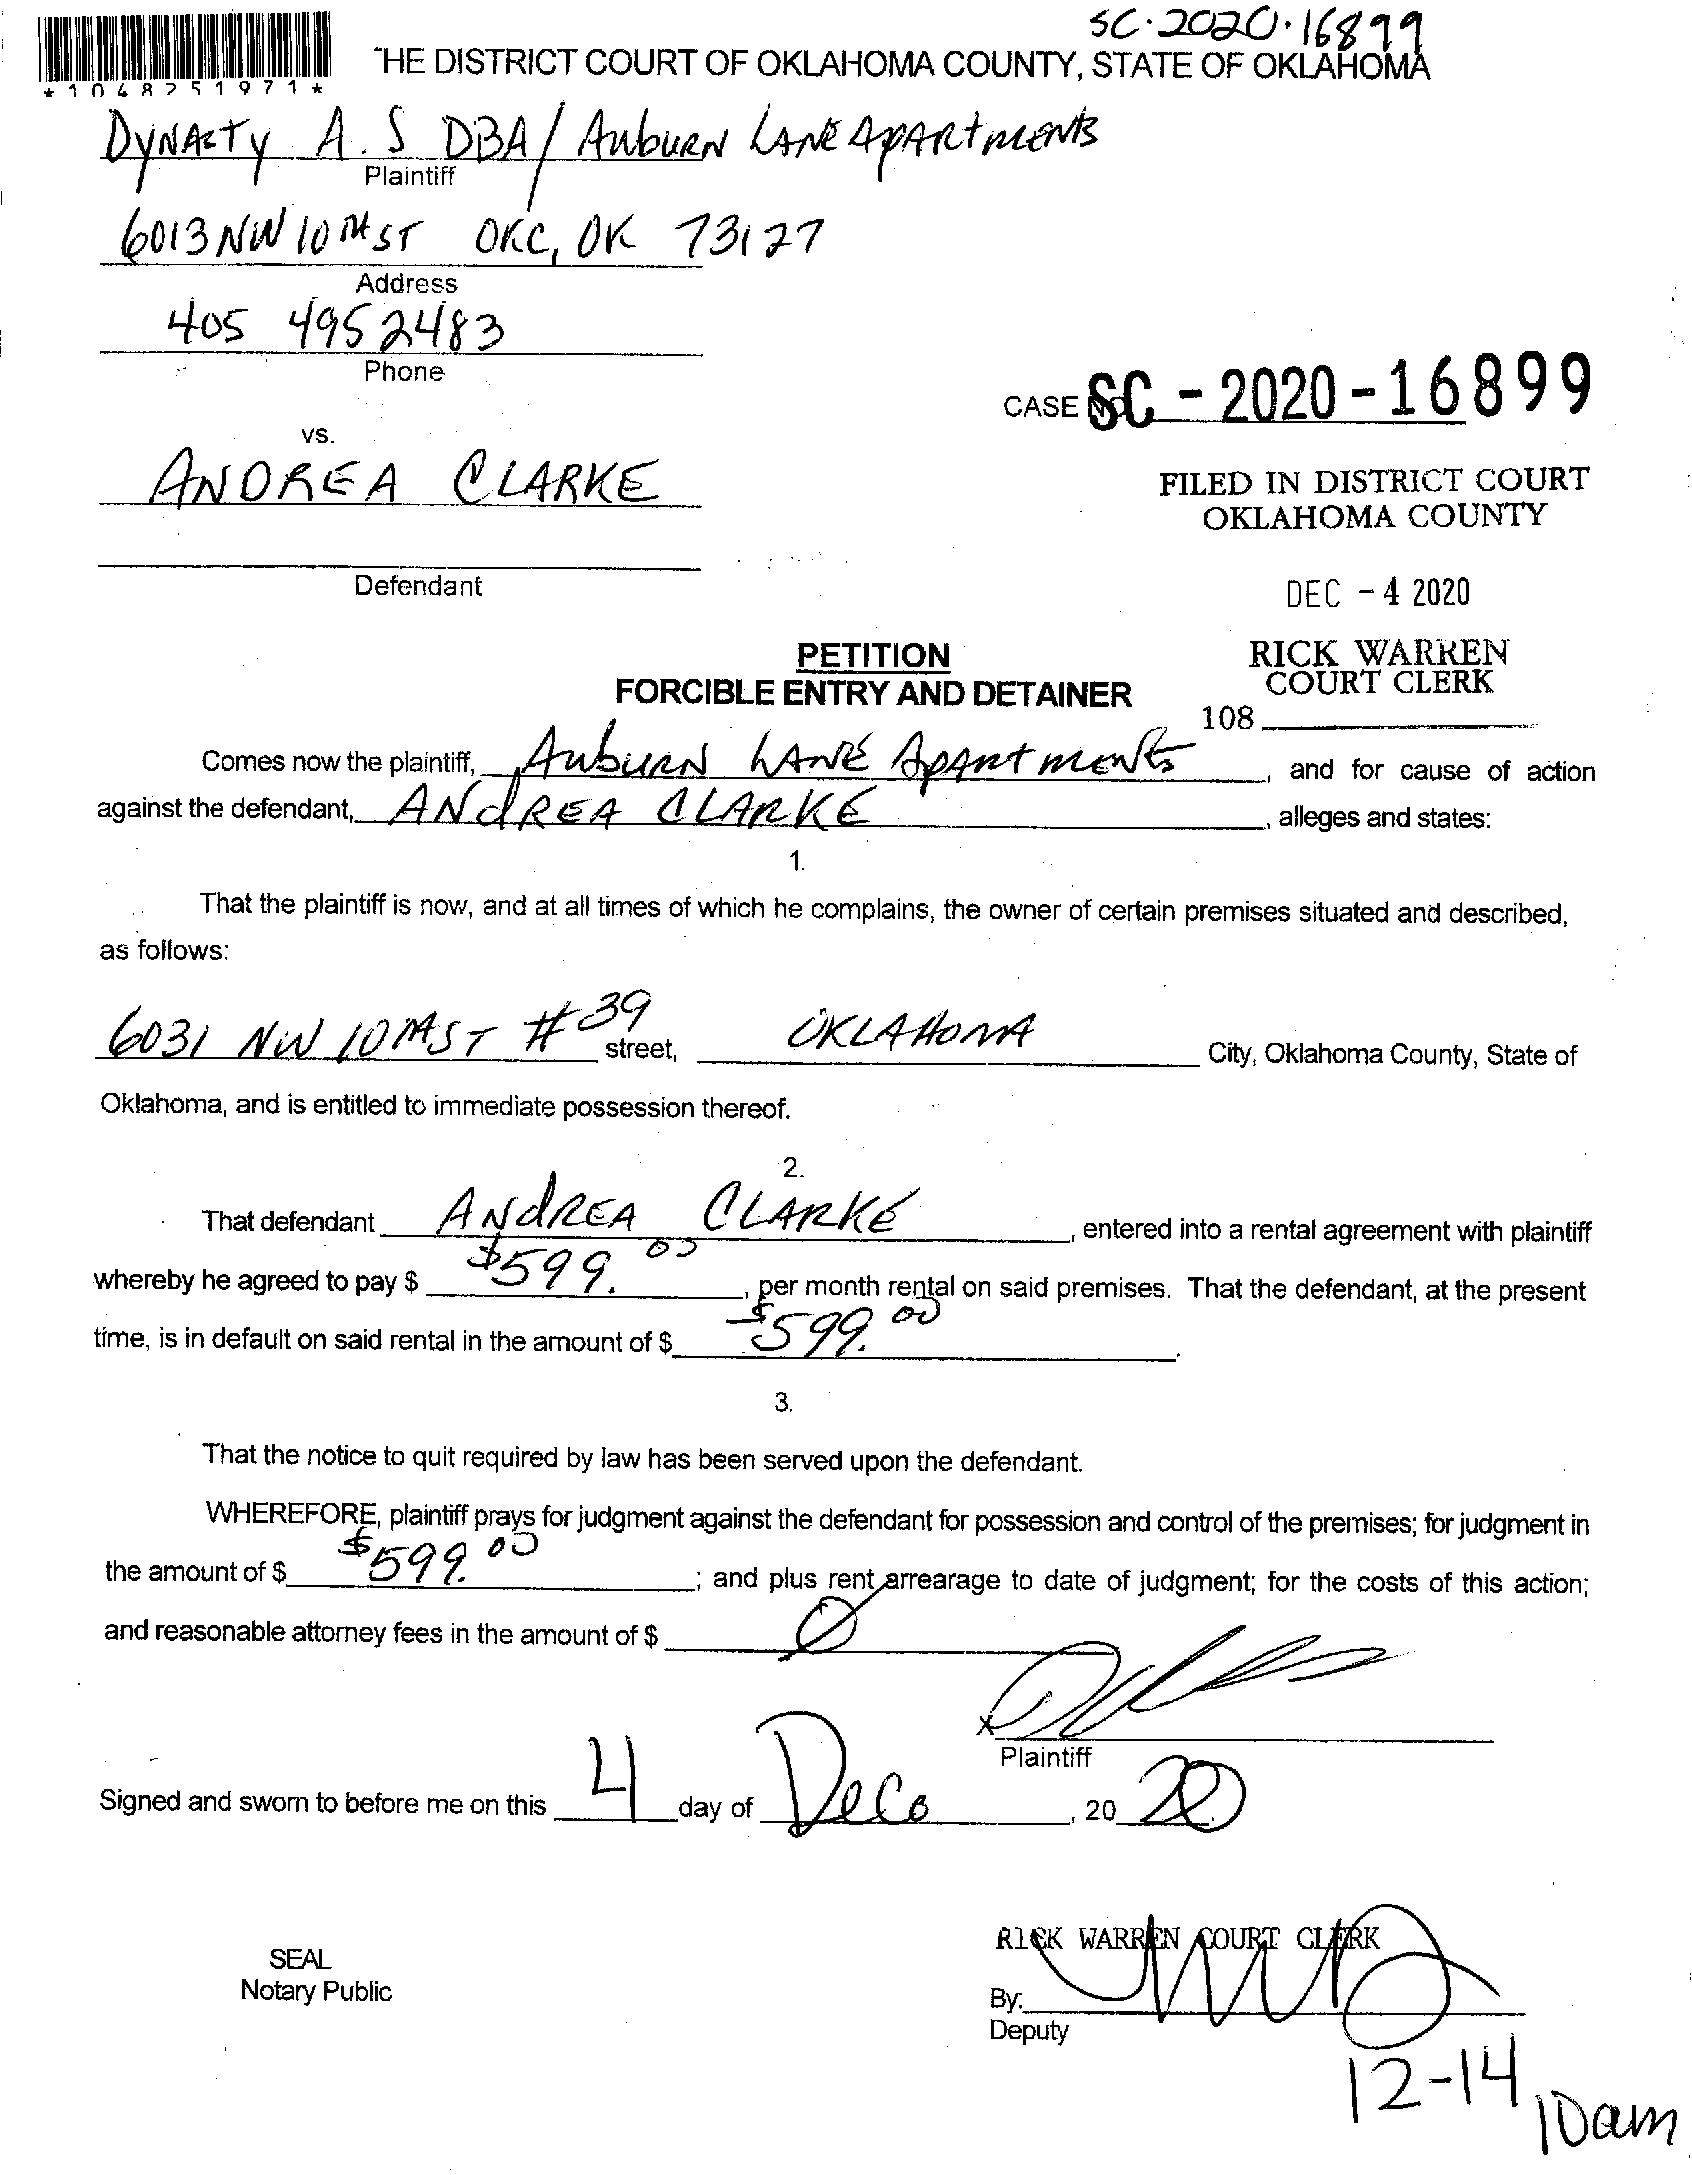 SC-2020-16899
THE DISTRICT COURT OF OKLAHOMA COUNTY, STATE OF OKLAHOMA
*1048251971*
DYNASTY A.S DBA/ AUBURN LANE APARTMENTS
Plaintiff
6013 NW 10TH ST OKC, OK 73127
Address
405 495 2483
Phone
CASE NO. SC - 2020 - 16899
vs.
ANDREA CLARKE
FILED IN DISTRICT COURT
OKLAHOMA COUNTY
Defendant
DEC - 4 2020
PETITION
FORCIBLE ENTRY AND DETAINER
RICK WARREN
COURT CLERK
108
Comes now the plaintiff, AUBURN LANE APARTMENTS, and for cause of action
against the defendant, ANDREA CLARKE, alleges and states:
1.
That the plaintiff is now, and at all times of which he complains, the owner of certain premises situated and described,
as follows:
6031 NW 10TH ST #39 street, OKLAHOMA City, Oklahoma County, State of
Oklahoma, and is entitled to immediate possession thereof.
2.
That defendant ANDREA CLARKE, entered into a rental agreement with plaintiff
whereby he agreed to pay $ $599.00, per month rental on said premises. That the defendant, at the present
time, is in default on said rental in the amount of $ $599.00.
3.
That the notice to quit required by law has been served upon the defendant.
WHEREFORE, plaintiff prays for judgment against the defendant for possession and control of the premises; for judgment in
the amount of $ $599.00; and plus rent arrearage to date of judgment; for the costs of this action;
and reasonable attorney fees in the amount of $ Ø
X
Plaintiff
Signed and sworn to before me on this 4 day of Dec, 20 20
RICK WARREN COURT CLERK
SEAL
Notary Public
By:
Deputy
12-14
10am